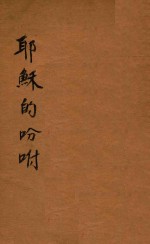 耶穌的吩咐